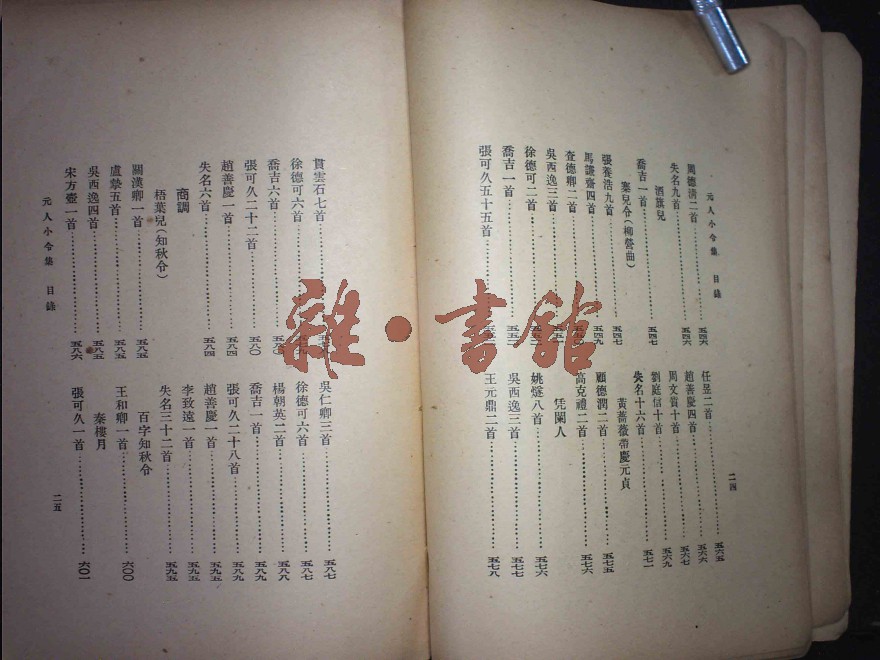 元人小令集 目錄
二四
周德清二首……五四六
失名九首……五四六
酒旗兒
喬吉一首……五四七
寨兒令(柳營曲)
張養浩九首……五四七
馬謙齋四首……五四九
查德卿二首……
吳西逸三首……
徐德可二首……五五二
喬吉一首……五五二
張可久五十五首……
任昱二首……五六五
趙善慶四首……五六六
周文質十首……五六七
劉庭信十首……五六九
失名十六首……五七一
黃薔薇帶慶元貞
顧德潤二首……五七五
高克禮二首……五七六
凭闌人
姚燧八首……五七六
吳西逸三首……五七七
王元鼎二首……五七八
貫雲石七首……
徐德可六首……
喬吉六首……五八〇
張可久二十二首……五八〇
趙善慶一首……五八四
失名六首……五八四
商調
梧葉兒(知秋令)
關漢卿一首……五八五
盧摯五首……五八五
吳西逸四首……五八五
宋方壺一首……五八六
吳仁卿三首……五八七
徐德可六首……五八七
楊朝英二首……五八八
喬吉一首……五八九
張可久二十八首……五八九
趙善慶一首……五九五
李致遠一首……五九五
失名三十二首……五九五
百字知秋令
王和卿一首……六〇〇
秦樓月
張可久一首……六〇一
元人小令集 目錄
二五
雜·書館